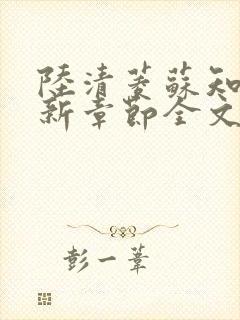 陸清菱蘇知
新章節全文
彭一葦